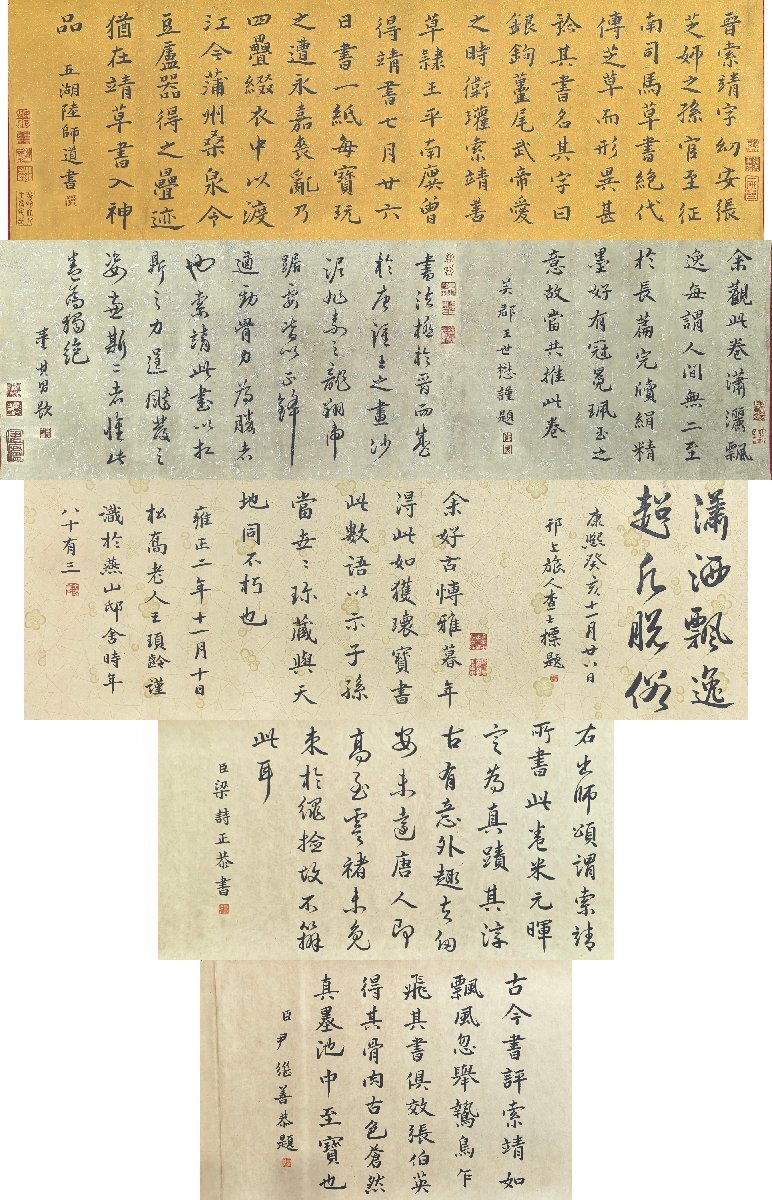 晉索靖字幼安張
芝姊之孫官至征
南司馬草書絕代
傳芝草而形異甚
矜其書名其字曰
銀鉤蠆尾武帝愛
之時衛瓘索靖善
草隸王平南廙曾
得靖書七月廿六
日書一紙每寶玩
之遭永嘉喪亂乃
四疊綴衣中以渡
江今蒲州桑泉令
豆盧器得之疊迹
猶在靖草書入神
品
五湖陸師道書
余觀此卷瀟灑飄
逸每謂人間無二至
於長篇完牘絹精
墨好有冠冕珮玉之
意故當共推此卷
吴郡王世懋謹題
書法極於晋而盛
於唐誰王之畫沙
泥旭素之龍翔虎
踞要皆以正鋒
遒勁骨力為勝者
也索靖此書以扛
鼎之力運飈發之
姿兼斯二者惟此
卷為獨絶
董其昌敬
瀟洒飄逸
超凡脫俗
康熙癸亥十一月廿八日
邗上旅人查士標題
余好古愽雅暮年
得此如獲瓌寶書
此數語以示子孫
當世世珎藏與天
地同不朽也
雍正二年十一月十日
松喬老人王頊齡謹
識於燕山邸舍時年
八十有三
右出師頌謂索靖
所書此卷米元暉
定為真蹟其淳
古有意外趣去幼
安未遠唐人即
高至雲褚未免
束於繩撿故不辦
此耳
臣梁詩正恭書
古今書評索靖如
飄風忽舉鷙鳥乍
飛其書俱效張伯英
得其骨肉古色蒼然
真墨池中至寶也
臣尹繼善恭題